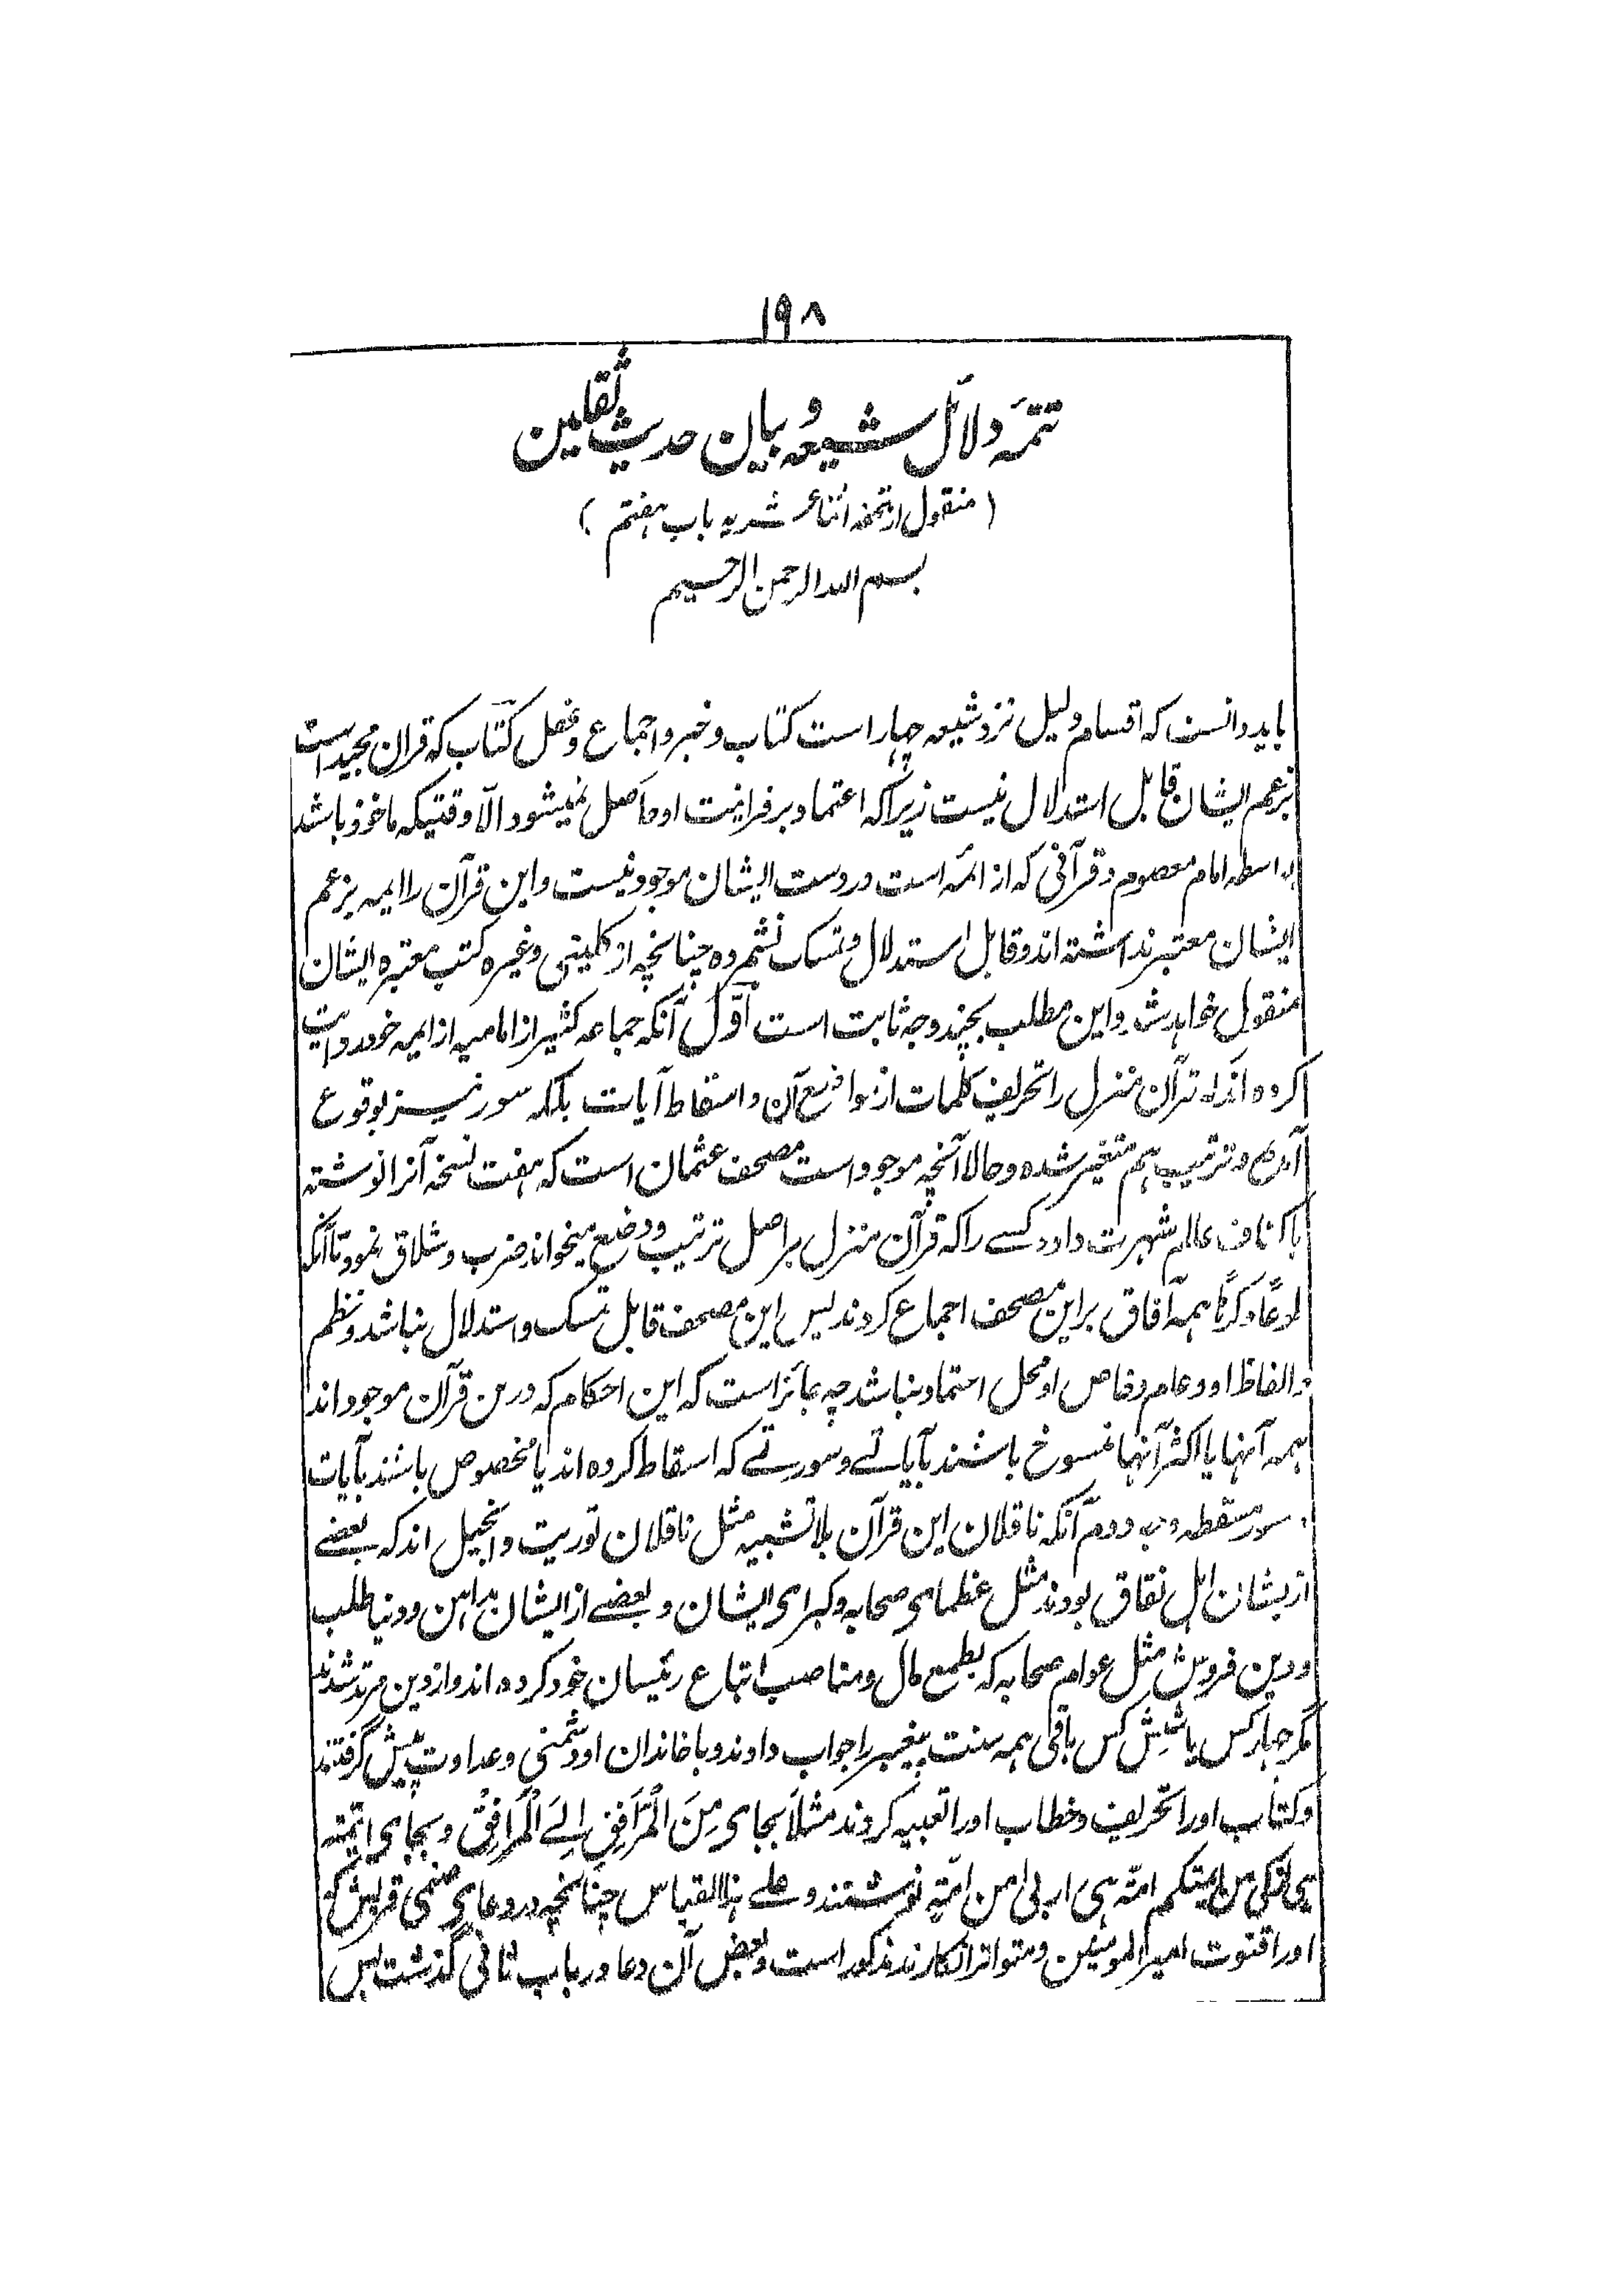 ۱۹۸
تتمہ دلائل شیعہ و بیان حدیث ثقلین
(منقول از تحفہ اثنا عشریہ باب ہفتم)
بسم اللہ الرحمن الرحیم
باید دانست کہ اقسام دلیل نزد شیعہ چہار است کتاب و خبر و اجماع و عقل کتاب کہ قرآن مجید است
بزعم ایشان قابل استدلال نیست زیرا کہ اعتماد بر قرانیت او حاصل نمیشود الّا وقتیکہ ماخوذ باشد
بواسطہ امام معصوم و قرآنی کہ از ائمہ است در دست ایشان موجود نیست و این قرآن را ایمہ بزعم
ایشان معتبر نداشتہ اند و قابل استدلال و تمسک نشمردہ چنانچہ از کلینی و غیرہ کتب معتبرہ ایشان
منقول خواہد شد و این مطلب بچند وجہ ثابت است اوّل آنکہ جماعہ کثیر از امامیہ از ایمہ خود روایت
کردہ اند کہ قرآن منزل را تحریف کلمات از مواضع آن و اسقاط آیات بلکہ سور نیز بوقوع
آمدہ و ترتیب ہم متغیر شدہ و حالا آنچہ موجود است مصحف عثمان است کہ ہفت نسخہ آنرا نوشتہ
باکناف عالم شہرت داد و کسے را کہ قرآن منزل بر اصل ترتیب و وضع میخواند ضرب و شلاق نمود تا آنکہ
طوعًا و کرہًا ہمہ آفاق بر این مصحف اجماع کردند پس این مصحف قابل تمسک و استدلال نباشد و نظم
و الفاظ او و عام و خاص او محل اعتماد نباشد چہ جائز است کہ این احکام کہ درین قرآن موجود اند
ہمہ آنہا یا اکثر آنہا منسوخ باشند بآیاتے و سورتے کہ اسقاط کردہ اند یا مخصوص باشند بآیات
و سور مسقطہ دوم آنکہ ناقلان این قرآن بلاتشبیہ مثل ناقلان توریت و انجیل اند کہ بعضے
ازیشان اہل نفاق بودند مثل عظمای صحابہ و کبرای ایشان و بعضے از ایشان مداہن و دنیا طلب
و دین فروش مثل عوام صحابہ کہ بطمع مال و مناصب اتباع رئیسان خود کردہ اند و از دین مرتد شدند
مگر چہار کس یا شش کس باقی ہمہ سنت پیغمبر را جواب دادند و با خاندان او دشمنی و عداوت پیش گرفتند
و کتاب او را تحریف و خطاب او را تعبیہ کردند مثلاً بجای مِنَ الْمَرَافِقِ اِلَے الْمَرَافِقِ و بجای ائمّتہ
ہی ازکی من ایمتکم امتہ ہی اربی من امّتہٍ نوشتند و علے ہذا القیاس چنانچہ در دعای صنمی قریش کہ
او را قنوت امیر المومنین و متواتر انگارند مذکور است و بعض آن دعا در باب ثانی گذشت پس